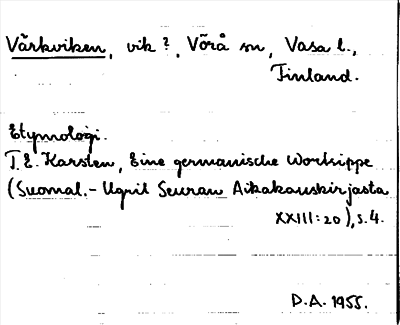 Värkviken, vik?, Võrå sn, Vasa l.,
Finland.
Etymologi.
T. E. Karsten, Eine germanische Wortsippe
(Suomal.-Ugril Seuran Aikakauskirjasta
XXIII:20), s. 4.
D.A. 1955.